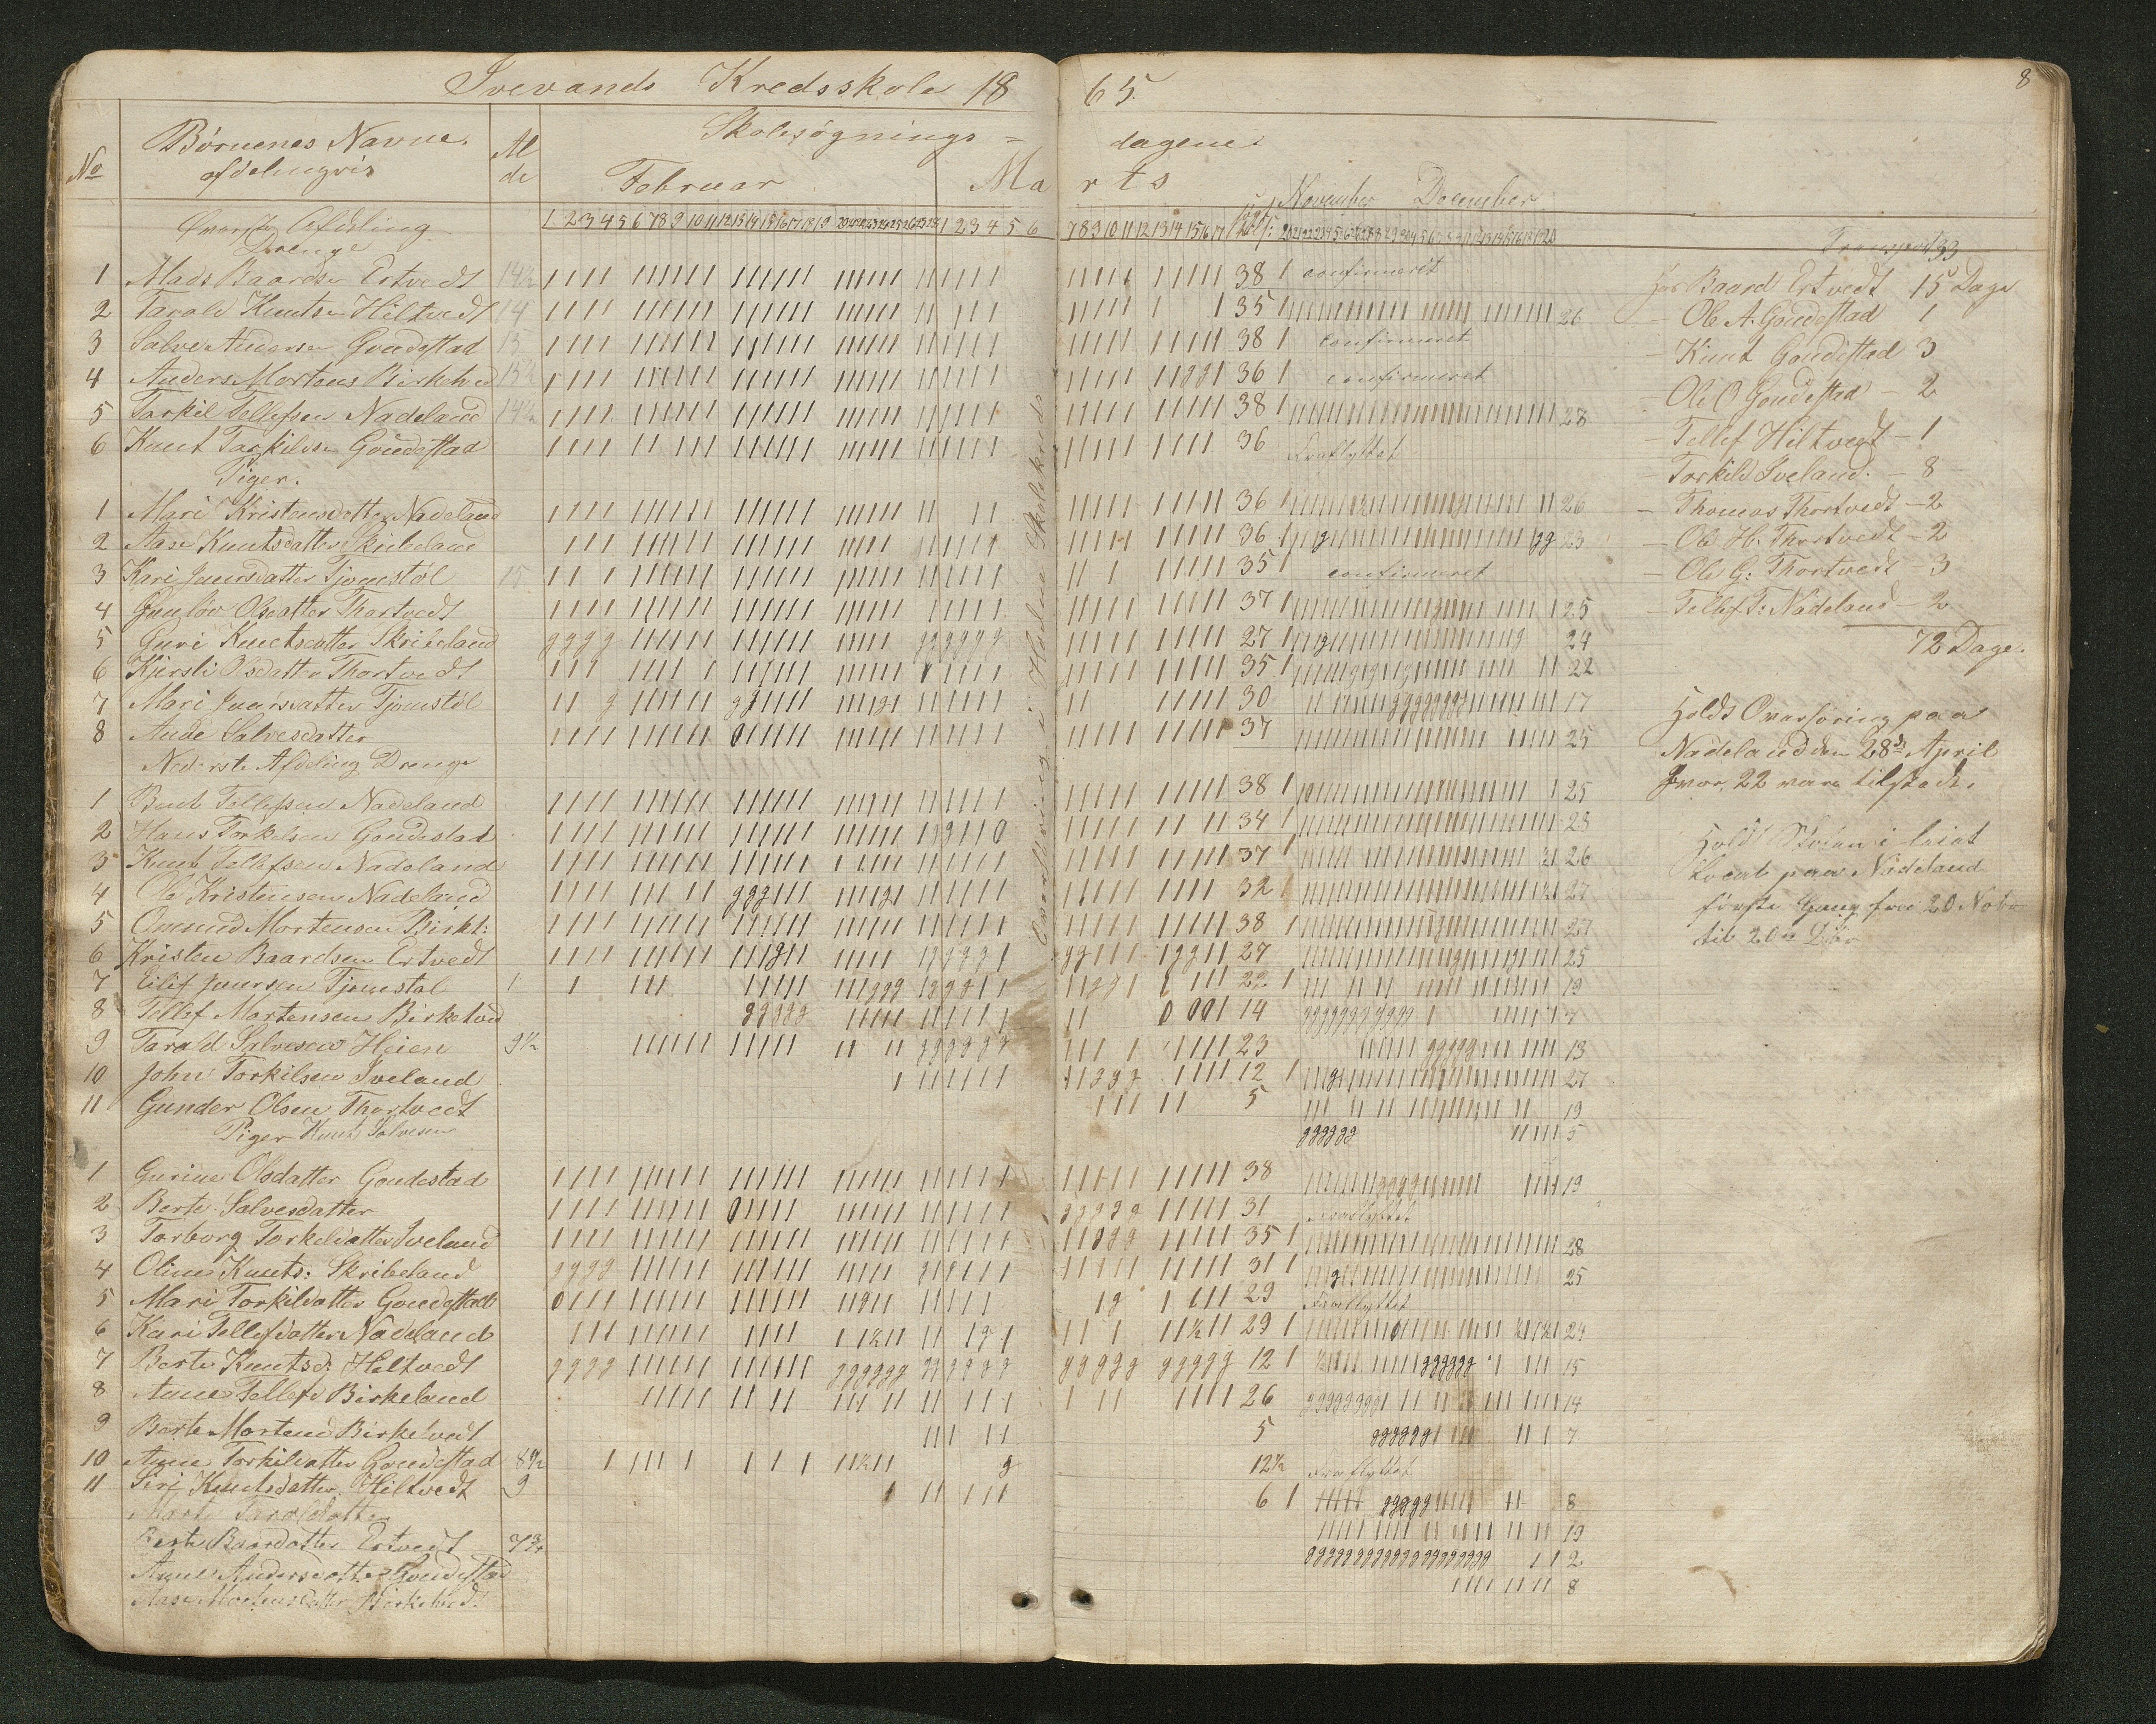 Ivevands Kredsskole 18 65.
8
No
Børnenes Navne
afdelingvis
Al
de
Skolesøgnings = dagene.
Februar
Marts
November December
Øverste Afdeling
Drenge
1 Mads Baardsen Ertvedt 14½ 38 1 confirmeret
2 Tarald Knutsen Hiltvedt 14 35 1 26
3 Salve Andersen Goudestad 15 38 1 confirmeret
4 Anders Mortens Birketved 15½ 36 1 confirmeret
5 Tarkil Tellefsen Nadeland 14½ 38 1 28
6 Knut Tarkildsen Goudestad 36 Fraflyttet
Piger.
1 Mari Kristensdatter Nadeland 36 1 26
2 Aase Knutsdatter Skribeland 36 1 23
3 Kari Jensdatter Tjomstøl 15 35 1 confirmeret
4 Gunløv Olsdatter Thortvedt 37 1 25
5 Guri Knutsdatter Skribeland 27 1 24
6 Kjersti Olsdatter Thortvedt 35 1 22
7 Mari Jensdatter Tjomstøl 30 17
8 Aude Salvesdatter 37 25
Nederste Afdeling Drenge
1 Bent Tellefsen Nadeland 38 1 25
2 Hans Torkelsen Goudestad 34 1 23
3 Knut Tellefsen Nadeland 37 1 26
4 Ole Kristensen Nadeland 32 1 27
5 Ommund Mortensen Birkt: 38 1 27
6 Kristen Baardsen Ertvedt 27 25
7 Eilif Jensen Tjomstøl 22 1 19
8 Tellef Mortensen Birketved 14 7
9 Tarald Salvesen Heien 9½ 23 13
10 John Torkilsen Iveland 12 1 27
11 Gunder Olsen Thortvedt 5 19
Piger Knut Salvesen 5
1 Gurine Olsdatter Goudestad 38 19
2 Berte Salvesdatter 31 Fraflyttet
3 Torborg Torkelsdatter Iveland 35 1 28
4 Oline Knuts: Skribeland 31 1 25
5 Mari Torkildatter Goudestad 29 Fraflyttet
6 Kari Tellefsdatter Nadeland 29 1 24
7 Berte Knutsd: Hiltvedt 12 1 15
8 Anne Tellefs Birkeland 26 14
9 Berte Mortens Birketvedt 5 7
10 Anne Torkildatter Goudestad 8½ 12½ Fraflyttet
11 Siri Knutsdatter Hiltvedt 9 6 1 8
Marte Taraldsdatter 19
Berte Baardsdatter Ertvedt 7¾ 2
Anne Andersdatter Goudestad 8
Aase Mortensdatter Birketved.
Overhøring i
Skolekreds
Transport 33
Hos Baard Ertvedt 15 Dage
– Ole A. Goudestad 1
– Knut Goudestad 3
– Ole O Goudestad – 2
– Tellef Hiltvedt – 1
– Torkild Iveland: – 8
– Thomas Thortvedt – 2
– Ole H. Thortvedt – 2
– Ole G: Thortvedt – 3
– Tellef T: Nadeland – 2
72 Dage.
Holdt Overhøring paa
Nadeland den 28de April
hvor 22 vare tilstede.
Holdt Skolen i leiet
Locale paa Nadeland
første Gang fra 20 Nobr
til 20de Dbr